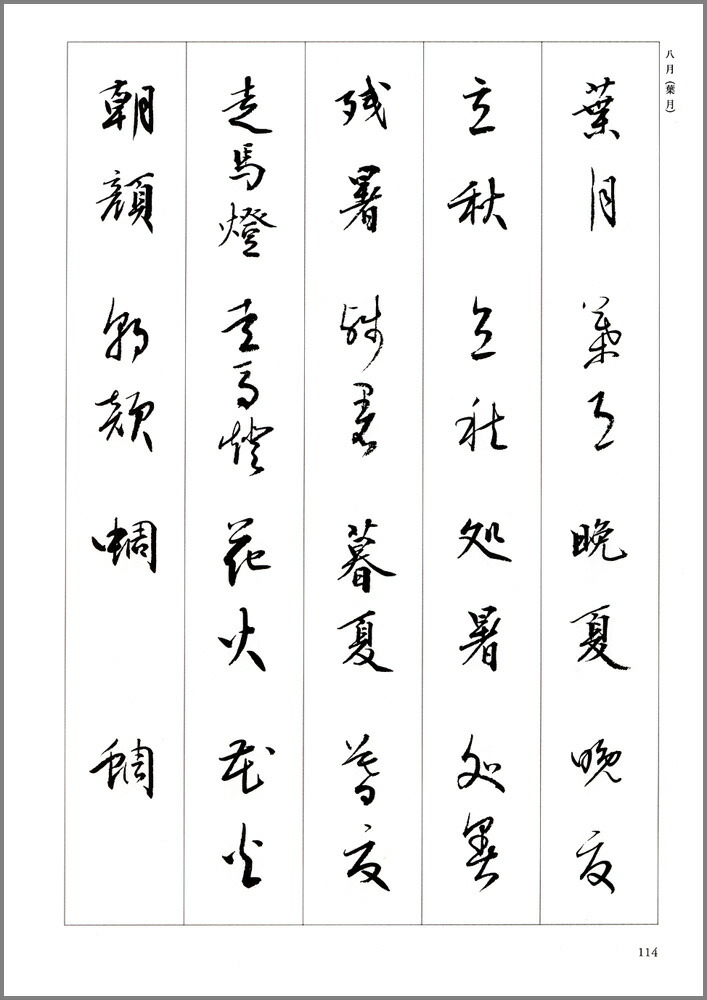 八月（葉月）
葉月 葉月 晩夏 晩夏
立秋 立秋 処暑 処暑
残暑 残暑 暮夏 暮夏
走馬燈 走馬燈 花火 花火
朝顔 朝顔 蜩 蜩
114